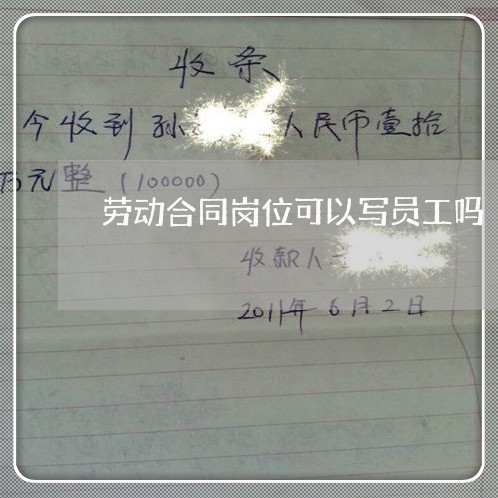 收条
今收到孙 人民币壹拾
万元整（100000）
劳动合同岗位可以写员工吗
收款人
2011年6月2日